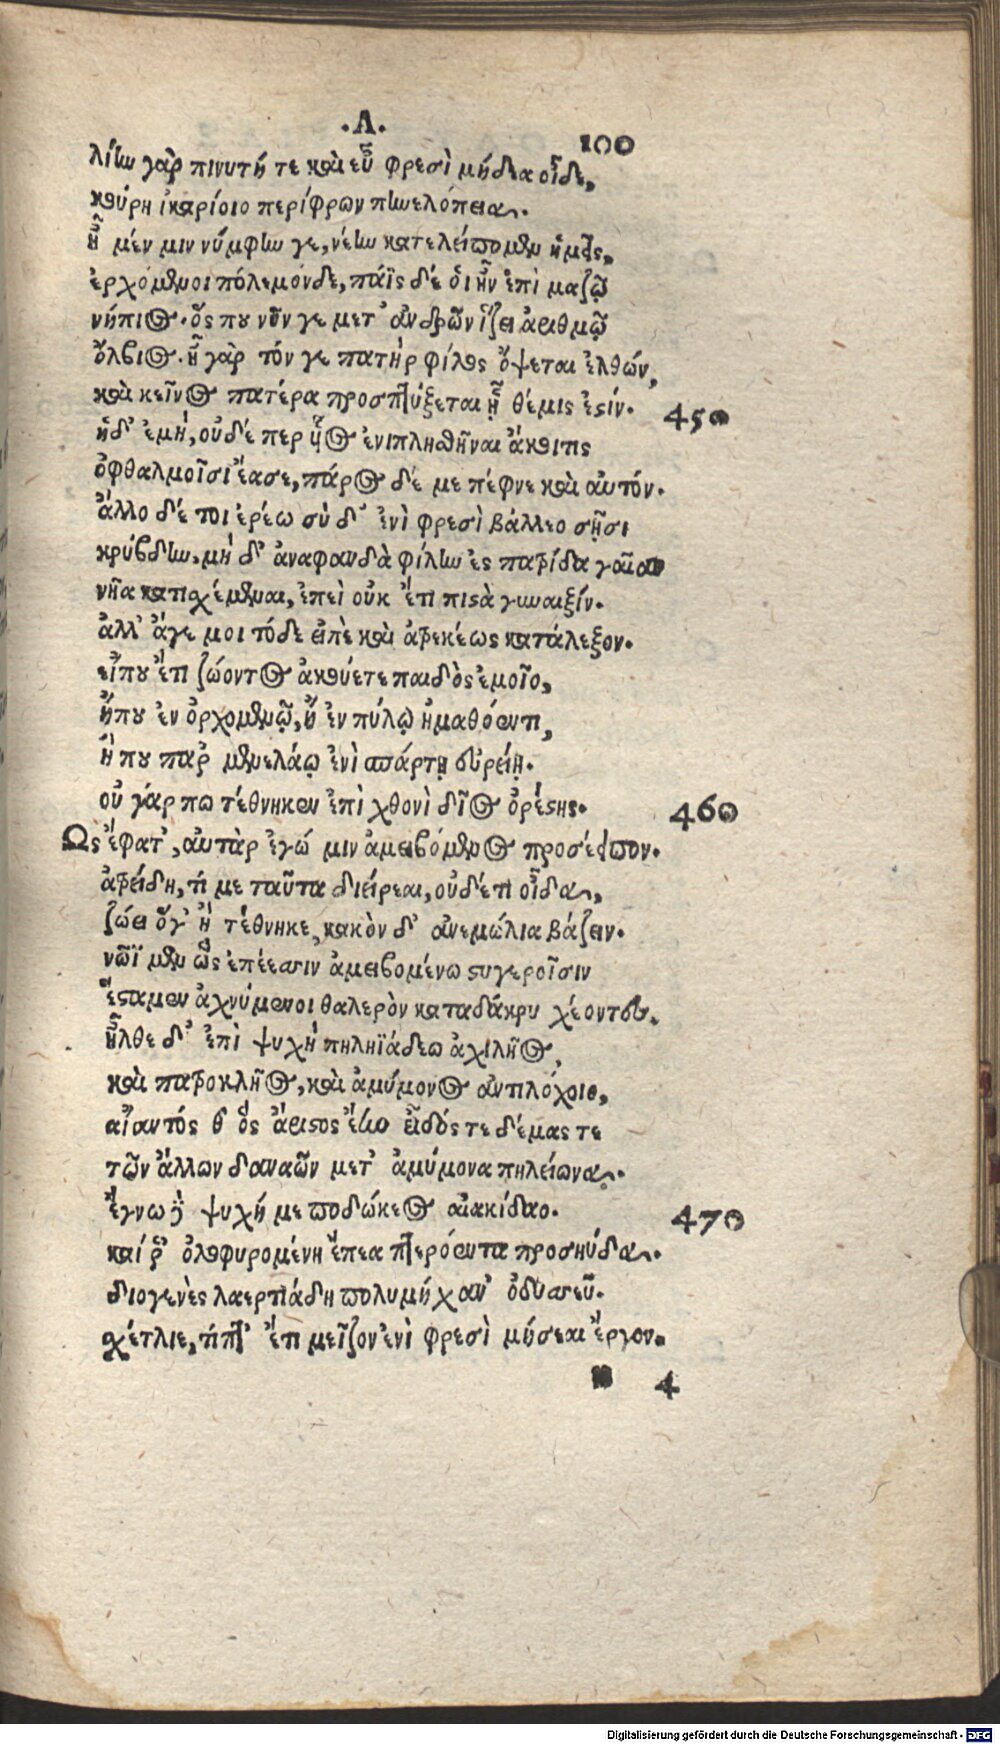 .Λ.
100
λίην γὰρ πινυτή τε καὶ εὖ φρεσὶ μήδεα οἶδε,
κούρη ἰκαρίοιο περίφρων πηνελόπεια.
ἦ μέν μιν νύμφην γε, νέην κατελείπομεν ἡμεῖς,
ἐρχόμενοι πόλεμόνδε, πάϊς δέ ὁι ἦν ἐπὶ μαζῷ
νήπιος. ὅς που νῦν γε μετ' ἀνδρῶν ἵζει ἀριθμῷ
ὄλβιος. ἦ γὰρ τόν γε πατὴρ φίλος ὄψεται ἐλθών,
καὶ κεῖνος πατέρα προσπτύξεται ᾗ θέμις ἐστίν. 450
ἡ δ' ἐμὴ, οὐδέ περ υἷος ἐνιπλησθῆναι ἄκοιτις
ὀφθαλμοῖσι ἔασε, πάρος δέ με πέφνε καὶ αὐτόν.
ἄλλο δέ τοι ἐρέω σὺ δ' ἐνὶ φρεσὶ βάλλεο σῇσι
κρύβδην, μὴ δ' ἀναφανδὰ φίλην ἐς πατρίδα γαῖαν
νῆα κατισχέμεναι, ἐπεὶ οὐκ έτι πιστὰ γυναιξίν.
ἀλλ' ἄγε μοι τόδε εἰπὲ καὶ ἀτρεκέως κατάλεξον.
εἴπου ἔτι ζώοντος ἀκούετε παιδὸς ἐμοῖο,
ἤπου ἐν ὀρχομενῷ, ἢ ἐν πύλῳ ἠμαθόεντι,
ἤ που παρ μενελάῳ ἐνὶ σπάρτῃ εὐρείῃ.
οὐ γάρ πω τέθνηκεν ἐπὶ χθονὶ δῖος ὀρέστης. 460
Ὣς ἔφατ', αὐτὰρ ἐγώ μιν ἀμειβόμενος προσέειπον.
ἀτρείδη, τί με ταῦτα διείρεαι, οὐδέτι οἶδα,
ζώει ὅγ' ἢ τέθνηκε, κακὸν δ' ἀνεμώλια βάζειν.
νῶϊ μὲν ὣς ἐπέεσσιν ἀμειβομένω στυγεροῖσιν
ἕσταμεν ἀχνύμενοι θαλερὸν καταδάκρυ χέοντες.
ἦλθε δ' ἐπὶ ψυχὴ πηληϊάδεω ἀχιλῆος,
καὶ πατροκλῆος, καὶ ἀμύμονος ἀντιλόχοιο,
αἴαντός θ' ὅς ἄριστος ἔην εἶδός τε δέμας τε
τῶν ἄλλων δαναῶν μετ' ἀμύμονα πηλείωνα.
ἔγνω δὲ ψυχή με ποδώκεος αἰακίδαο. 470
καί ῥ' ὀλοφυρομένη ἔπεα πτερόεντα προσηύδα.
διογενὲς λαερτιάδη πολυμήχαν' ὀδυσσεῦ.
σχέτλιε, τίπτ' ἔτι μεῖζον ἐνὶ φρεσὶ μήσεαι ἔργον.
4
Digitalisierung gefördert durch die Deutsche Forschungsgemeinschaft - DFG